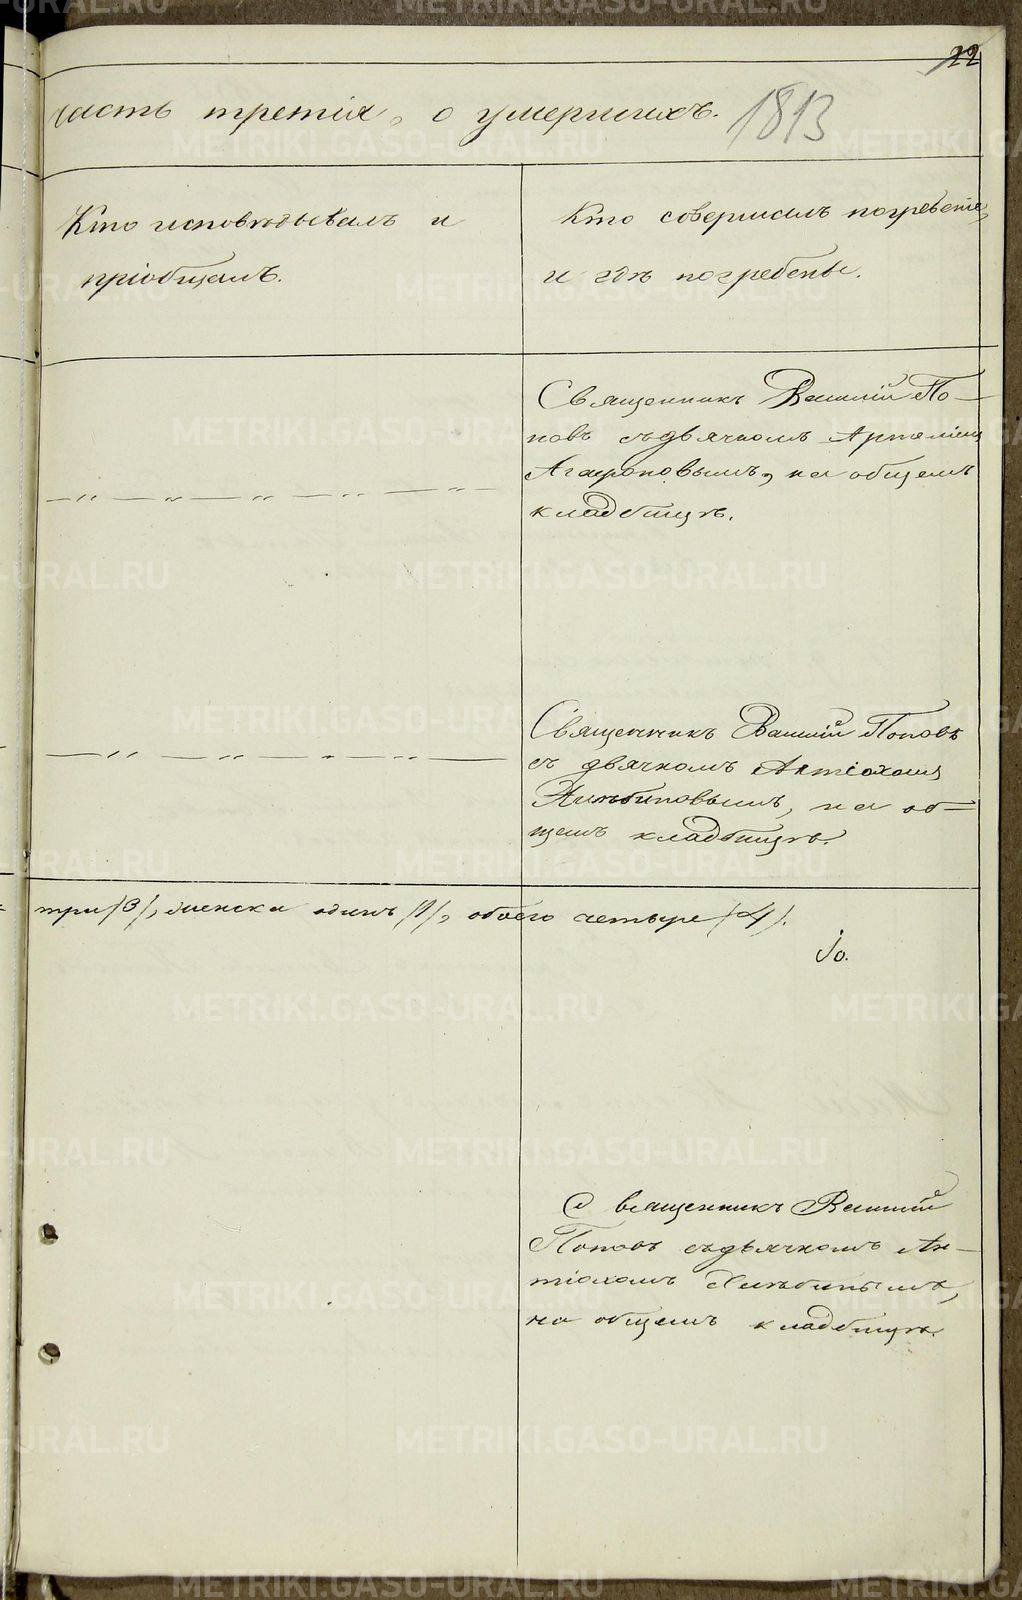 22
часть третія, о умершихъ. 1813
Кто исповѣдывалъ и
пріобщалъ.
Кто совершилъ погребеніе,
и гдѣ погребены.
Священникъ Василій По-
повъ съ дьячкомъ Артеміемъ
Агафоновымъ, на общемъ
кладбищѣ.
— " — " — " — " — " —
Священникъ Василій Поповъ
съ дьячкомъ Антіохомъ
Хлѣбиновымъ, на об-
щемъ кладбищѣ.
— " — " — " — " —
три /3/, женска одинъ /1/, обоего четыре /4/.
Священникъ Василій
Поповъ съ дьячкомъ Ан-
тіохомъ
на общемъ кладбищѣ.
METRIKI.GASO-URAL.RU